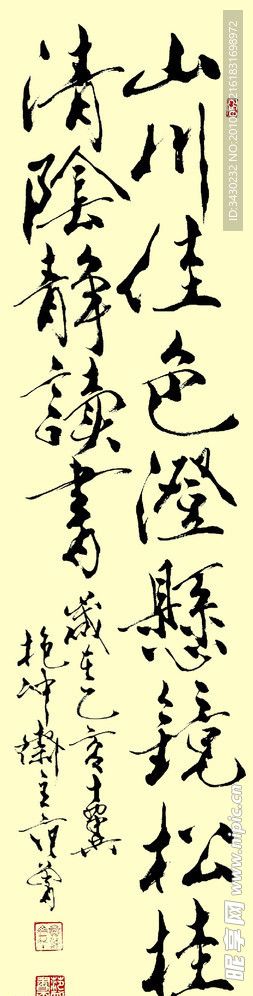 山川佳色澄懸鏡松桂
清陰静讀書
歲在乙亥
抱冲齋主范曾
ID:3430232 NO:20100521618316989​72
昵享网 www.nipic.cn